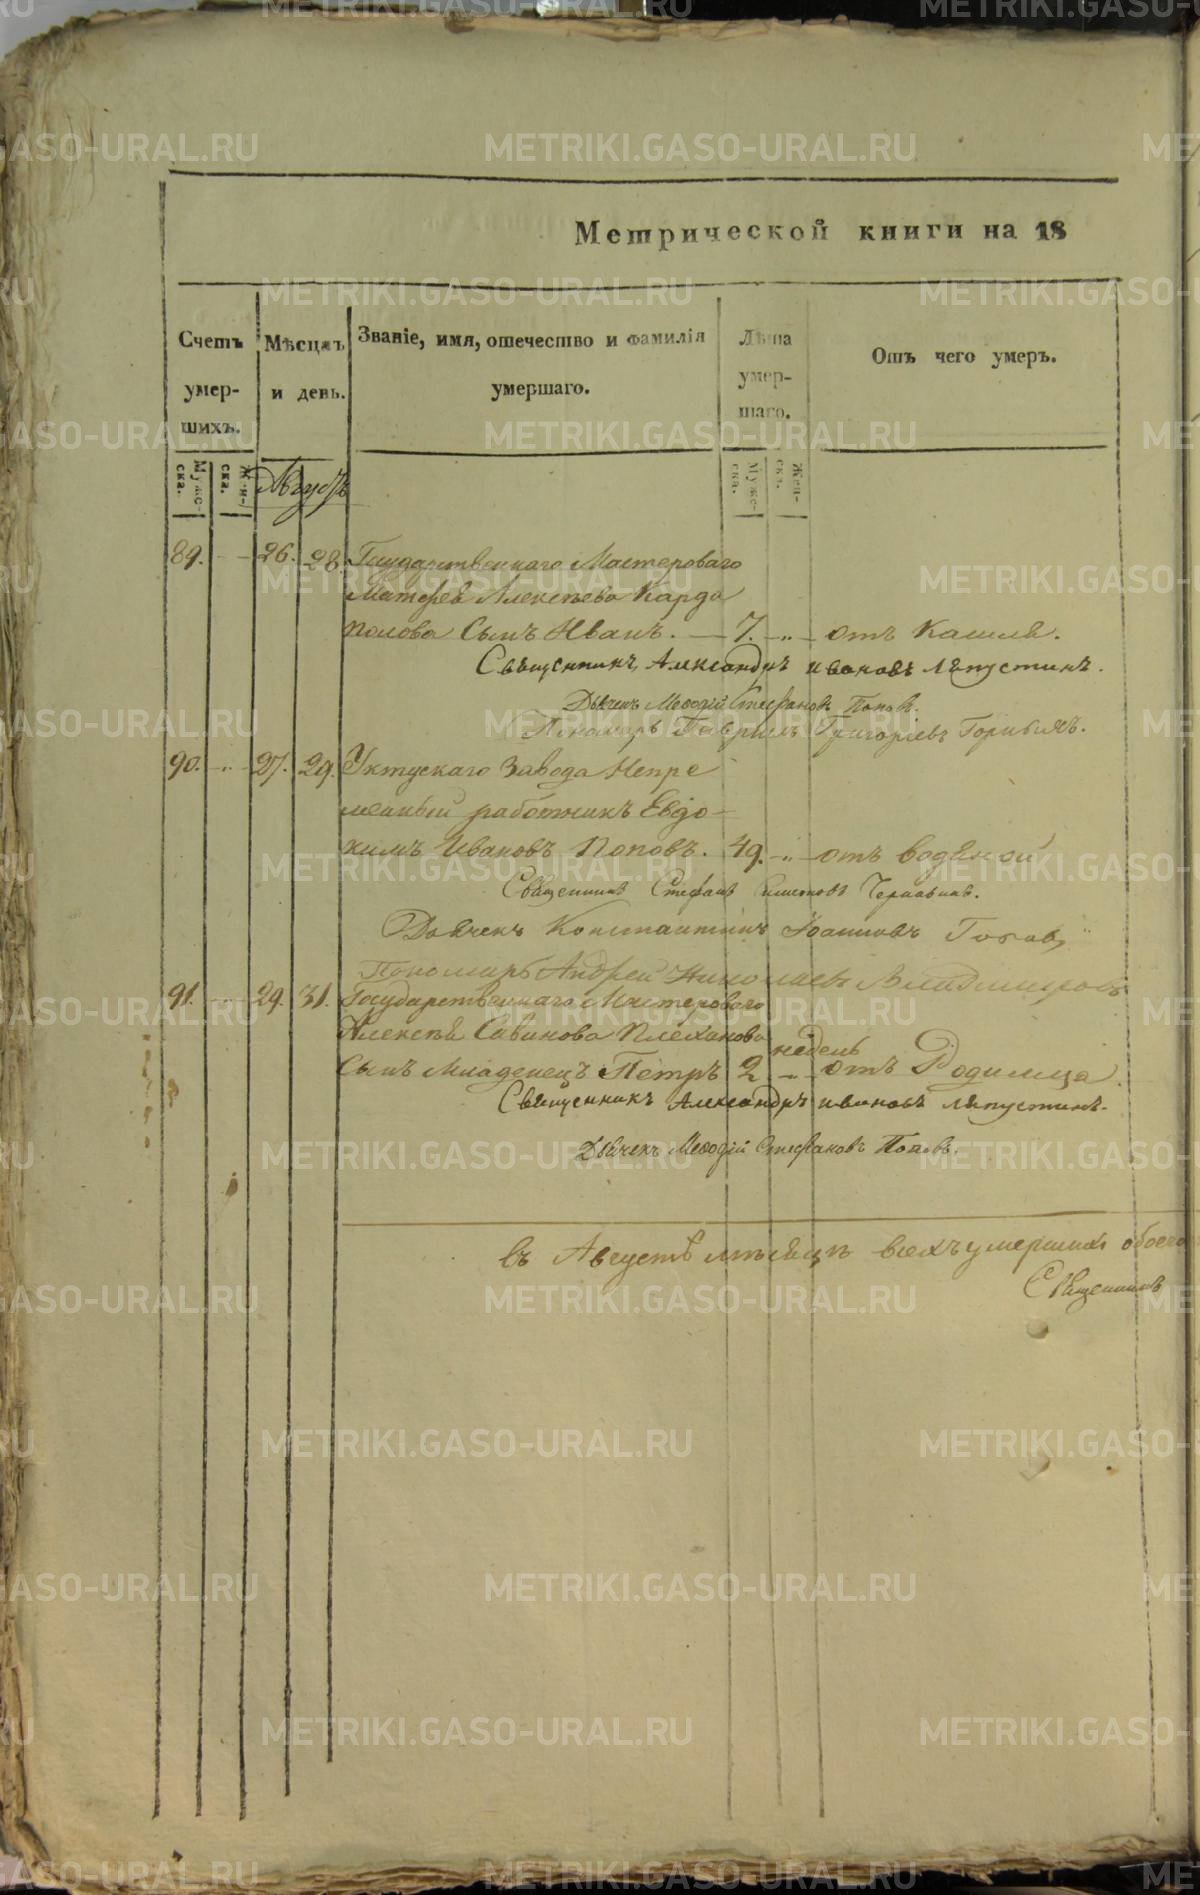 Метрической книги на 18
Счетъ умер- шихъ.
Мѣсяцъ и день.
Званіе, имя, отечество и фамилія умершаго.
Лѣта умер- шаго.
Отъ чего умеръ.
Муже- ска.
Жен- ска.
Августъ
Муже- ска.
Жен- ска.
89. 26. 28. Государственнаго Мастероваго
Матфея Алексѣева Карда
полова Сынъ Иванъ. 7. отъ Кашля.
Священникъ Александръ ивановъ Ляпустинъ.
Дьячекъ Меѳодій Стефановъ Поповъ.
Пономарь Гаврилъ Григоріевъ
90. 27. 29. Уктускаго Завода Непре
менный работникъ Евдо-
кимъ Ивановъ Поповъ. 49. отъ водяной
Священникъ Стефанъ Чернавинъ.
Дьячекъ Константинъ Іоанновъ Поповъ
Пономарь Андрей Николаевъ Владимировъ
91. 29. 31. Государственнаго Мастероваго
Алексѣя Савинова Плеханова
недель
Сынъ Младенецъ Петръ 2 отъ Родимца.
Священникъ Александръ ивановъ ляпустинъ.
Дьячекъ Меѳодій Стефановъ Поповъ.
въ Августѣ мѣсяцѣ всехъ умершихъ обоего
Священникъ
METRIKI.GASO-URAL.RU